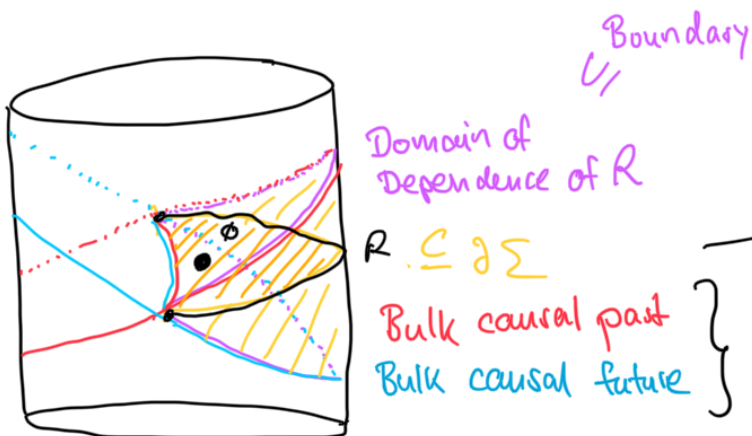 Boundary
Domain of
Dependence of R
ϕ
R ⊆ ∂Σ
Bulk causal past
Bulk causal future